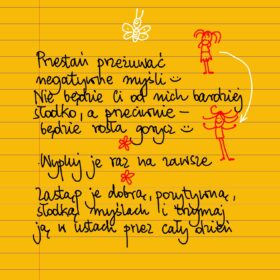 Przestań przeżuwać
negatywne myśli
Nie będzie Ci od nich bardziej
słodko, a przeciwnie –
będzie rosła gorycz
Wypluj je raz na zawsze
Zastąp je dobrą, pozytywną,
słodką myślach i trzymaj
ją w ustach przez cały dzień